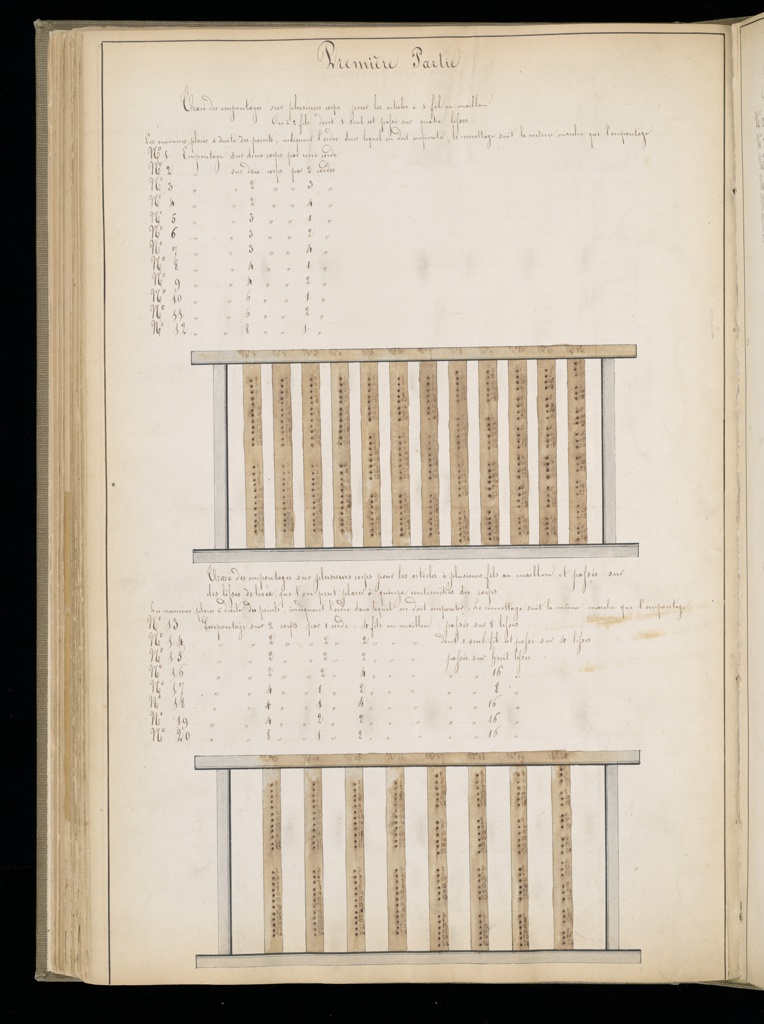 Première Partie
Tracé des empontages sur plusieurs corps pour les articles à 1 fil au maillon
Ou à 2 fils dont 1 seul est passé sur quatre lisses.
Les numéros placés à droite des points, indiquent l'ordre dans lequel on doit empouter, le remettage suit la même marche que l'empoutage
N° 1 Empoutage sur deux corps par une corde
N° 2 " sur deux corps par 2 cordes
N° 3 " " 2 " " 3 "
N° 4 " " 2 " " 4 "
N° 5 " " 3 " " 1 "
N° 6 " " 3 " " 2 "
N° 7 " " 3 " " 4 "
N° 8 " " 4 " " 1 "
N° 9 " " 4 " " 2 "
N° 10 " " 6 " " 1 "
N° 11 " " 6 " " 2 "
N° 12 " " 8 " " 1 "
Tracé des empoutages sur plusieurs corps pour les articles à plusieurs fils au maillon et passés sur
des lisses de levée, que l'on peut placer à quinze centimètres du corps
Les numéros placés à droite du points, indiquent l'ordre dans lequel on doit empouter. Le remettage suit la même marche que l'empoutage
N° 13 Empoutage sur 2 corps par 1 corde. 4 fils au maillon passés sur 8 lisses
N° 14 " " 2 " " 2 " 2 " " dont 1 seul fil est passé sur 4 lisses
N° 15 " " 2 " " 2 " 2 " " passés sur huit lisses
N° 16 " " 2 " " 2 " 4 " " " " 16 "
N° 17 " " 4 " " 1 " 2 " " " " 8 "
N° 18 " " 4 " " 1 " 4 " " " " 16 "
N° 19 " " 4 " " 2 " 2 " " " " 16 "
N° 20 " " 8 " " 1 " 2 " " " " 16 "